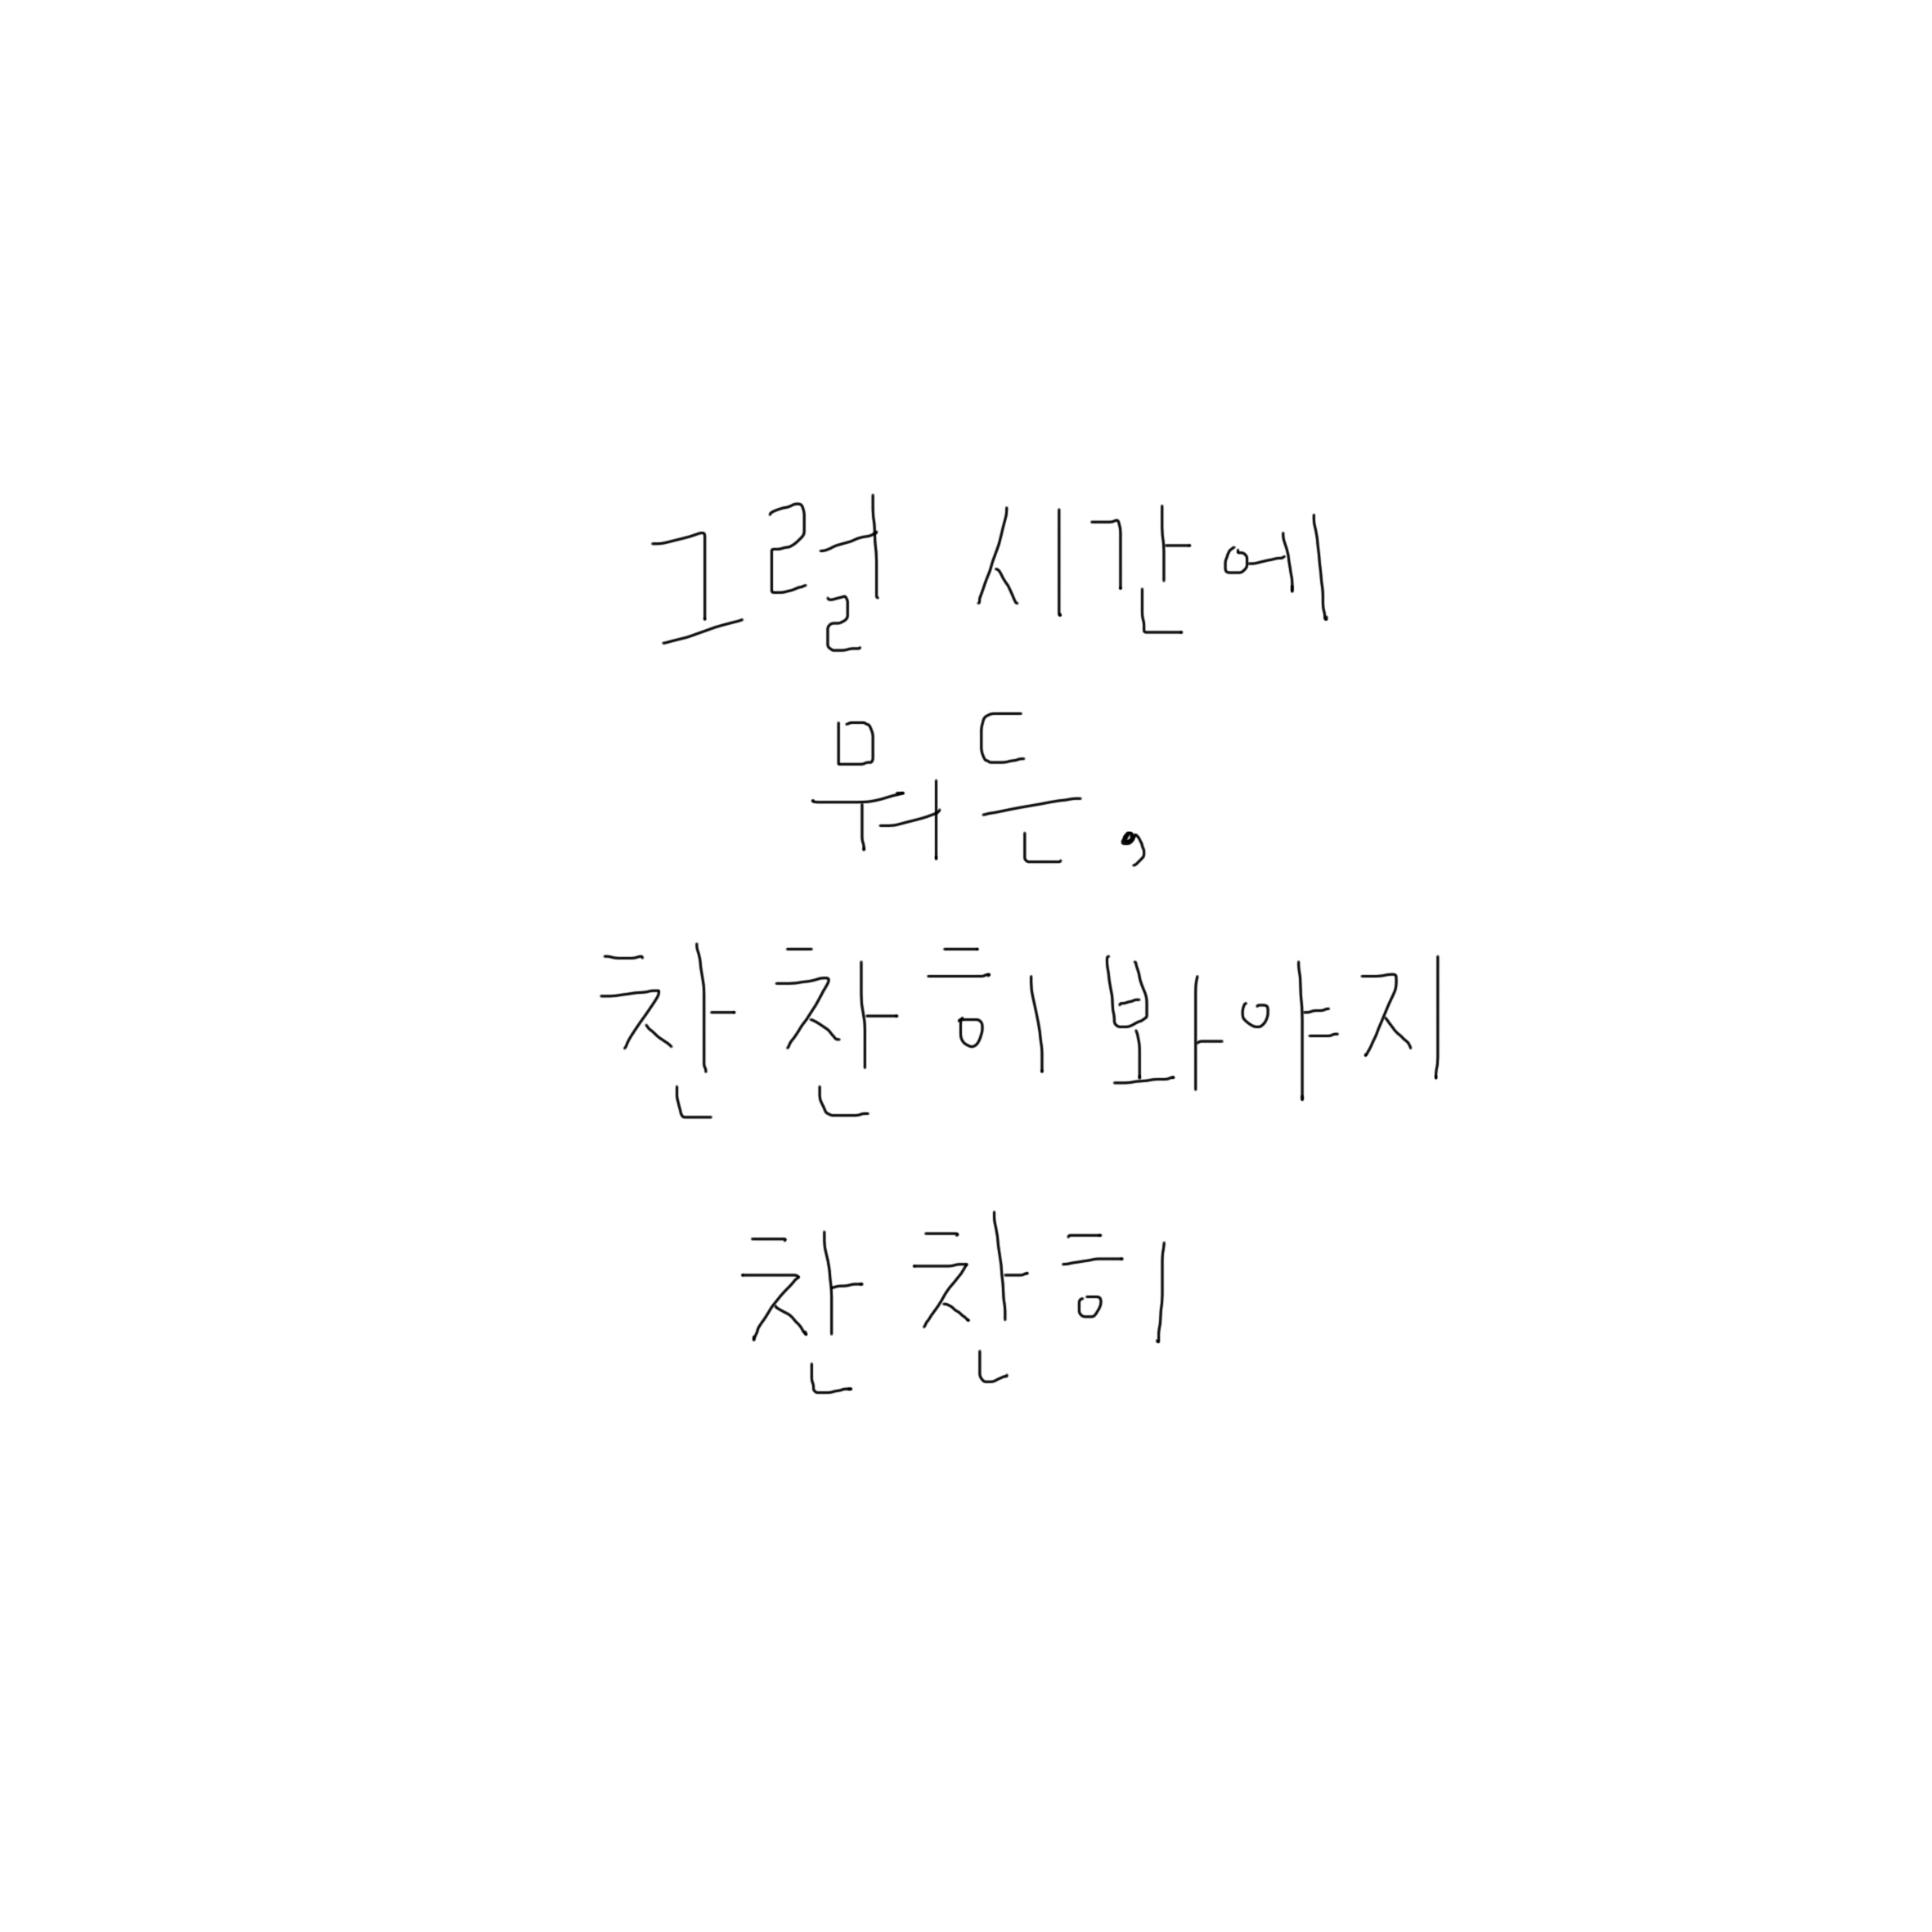 그럴 시간에
뭐든,
찬찬히 봐야지
찬찬히